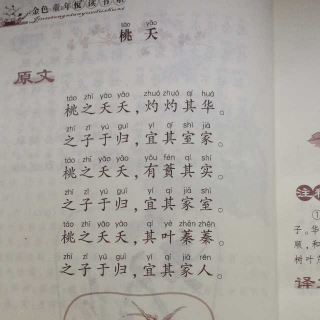 金色童年悦读书系
táo yāo
桃 夭
原文
táo zhī yāo yāo zhuó zhuó qí huā
桃之夭夭，灼灼其华。
zhī zǐ yú guī yí qí shì jiā
之子于归，宜其室家。
táo zhī yāo yāo yǒu fén qí shí
桃之夭夭，有蕡其实。
zhī zǐ yú guī yí qí jiā shì
之子于归，宜其家室。
táo zhī yāo yāo qí yè zhēn zhēn
桃之夭夭，其叶蓁蓁。
zhī zǐ yú guī yí qí jiā rén
之子于归，宜其家人。
注
①
子。华
顺，和
树叶
译